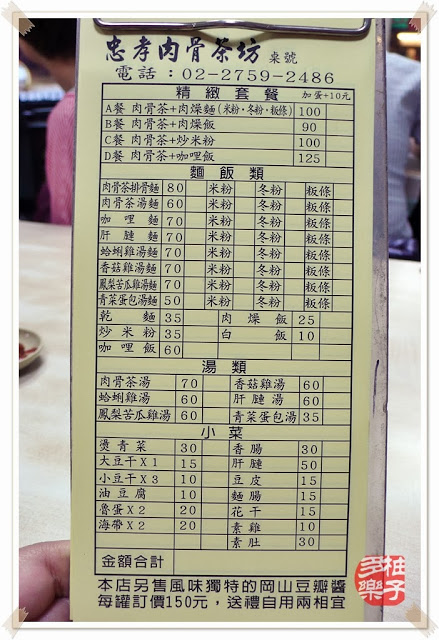 忠孝肉骨茶坊 桌號
電話：02-2759-2486
精緻套餐 加蛋+10元
A餐 肉骨茶+肉燥麵(米粉·冬粉·粄條) 100
B餐 肉骨茶+肉燥飯 90
C餐 肉骨茶+炒米粉 100
D餐 肉骨茶+咖哩飯 125
麵飯類
肉骨茶排骨麵 80 米粉 冬粉 粄條
肉骨茶湯麵 60 米粉 冬粉 粄條
咖哩麵 70 米粉 冬粉 粄條
肝腱麵 70 米粉 冬粉 粄條
蛤蜊雞湯麵 70 米粉 冬粉 粄條
香菇雞湯麵 70 米粉 冬粉 粄條
鳳梨苦瓜雞湯麵 70 米粉 冬粉 粄條
青菜蛋包湯麵 50 米粉 冬粉 粄條
乾麵 35 肉燥飯 25
炒米粉 35 白飯 10
咖哩飯 60
湯類
肉骨茶湯 70 香菇雞湯 60
蛤蜊雞湯 60 肝腱湯 60
鳳梨苦瓜雞湯 60 青菜蛋包湯 35
小菜
燙青菜 30 香腸 30
大豆干X1 15 肝腱 50
小豆干X3 10 豆皮 15
油豆腐 10 麵腸 15
魯蛋X2 20 花干 15
海帶X2 20 素雞 10
素肚 30
金額合計
本店另售風味獨特的岡山豆瓣醬
每罐訂價150元，送禮自用兩相宜
柚子多樂